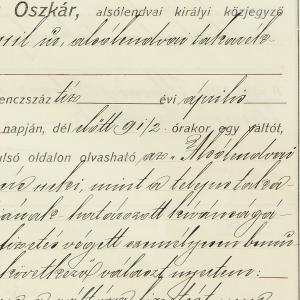 Oszkár, alsólendvai királyi közjegyző
úr, alsólendvai takarék-
enczszáz tíz évi április
napján, dél előtt 9 1/2 órakor egy váltót,
ulsó oldalon olvasható az "Alsólendvai
neki, mint a teljes taka-
határozott kívánságá-
fizetés végett személyesen bemu-
következő választ nyertem: